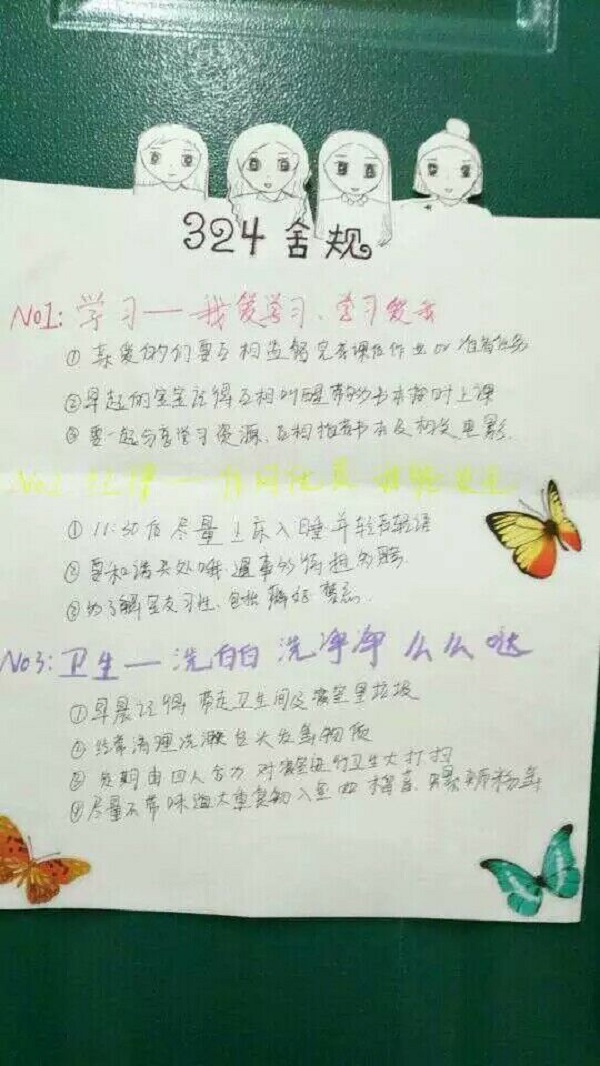 324舍规
No1: 学习——我爱学习、学习爱我
①亲爱的们要互相监督完成课后作业or准备任务
②早起的宝宝记得互相叫醒带好书本按时上课
③要一起分享学习资源、互相推荐书本及相关电影.
No2: 纪律——
①11:30后尽量上床入睡并轻声轻语
②要和谐共处哦,遇事多
③多了解室友习性、包括
No3: 卫生——洗白白 洗净净 么么哒
①早晨记得带走卫生间及寝室里垃圾
②经常清理洗漱台头发等物质
③定期由四人合力对寝室进行卫生大打扫
④尽量不带味道太重食物入室如榴莲、螺蛳粉等